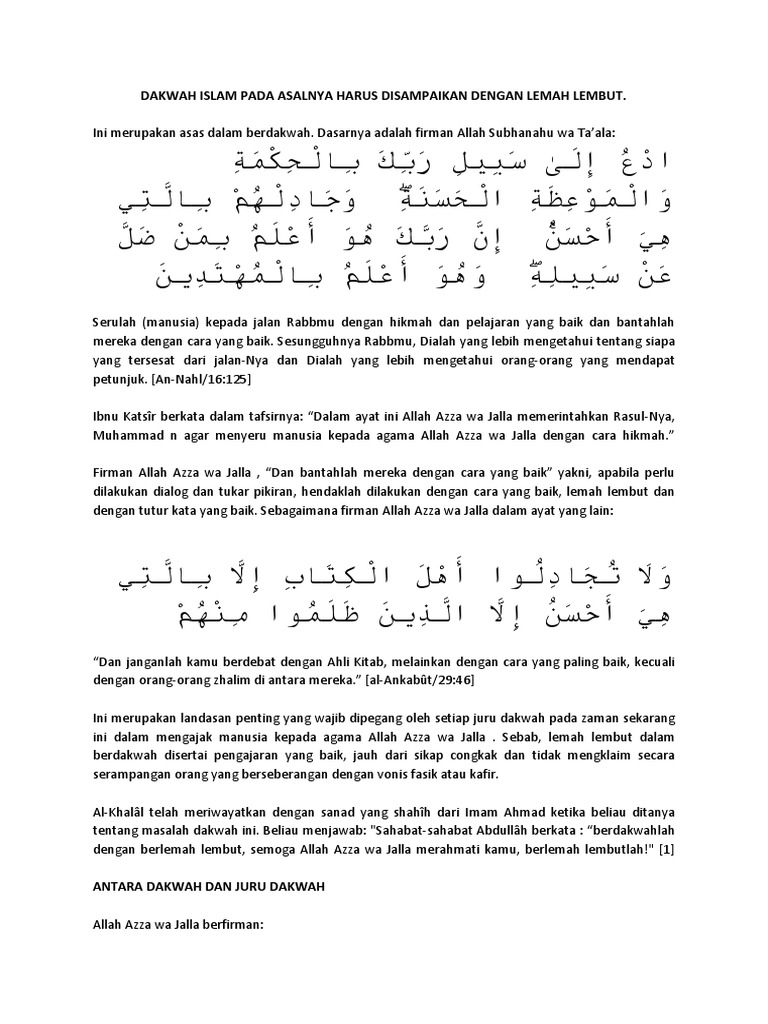 DAKWAH ISLAM PADA ASALNYA HARUS DISAMPAIKAN DENGAN LEMAH LEMBUT.
Ini merupakan asas dalam berdakwah. Dasarnya adalah firman Allah Subhanahu wa Ta’ala:
ادْعُ إِلَىٰ سَبِيلِ رَبِّكَ بِالْحِكْمَةِ
وَالْمَوْعِظَةِ الْحَسَنَةِ ۖ وَجَادِلْهُمْ بِالَّتِي
هِيَ أَحْسَنُ ۚ إِنَّ رَبَّكَ هُوَ أَعْلَمُ بِمَنْ ضَلَّ
عَنْ سَبِيلِهِ ۖ وَهُوَ أَعْلَمُ بِالْمُهْتَدِينَ
Serulah (manusia) kepada jalan Rabbmu dengan hikmah dan pelajaran yang baik dan bantahlah
mereka dengan cara yang baik. Sesungguhnya Rabbmu, Dialah yang lebih mengetahui tentang siapa
yang tersesat dari jalan-Nya dan Dialah yang lebih mengetahui orang-orang yang mendapat
petunjuk. [An-Nahl/16:125]
Ibnu Katsîr berkata dalam tafsirnya: “Dalam ayat ini Allah Azza wa Jalla memerintahkan Rasul-Nya,
Muhammad n agar menyeru manusia kepada agama Allah Azza wa Jalla dengan cara hikmah.”
Firman Allah Azza wa Jalla , “Dan bantahlah mereka dengan cara yang baik” yakni, apabila perlu
dilakukan dialog dan tukar pikiran, hendaklah dilakukan dengan cara yang baik, lemah lembut dan
dengan tutur kata yang baik. Sebagaimana firman Allah Azza wa Jalla dalam ayat yang lain:
وَلَا تُجَادِلُوا أَهْلَ الْكِتَابِ إِلَّا بِالَّتِي
هِيَ أَحْسَنُ إِلَّا الَّذِينَ ظَلَمُوا مِنْهُمْ
“Dan janganlah kamu berdebat dengan Ahli Kitab, melainkan dengan cara yang paling baik, kecuali
dengan orang-orang zhalim di antara mereka.” [al-Ankabût/29:46]
Ini merupakan landasan penting yang wajib dipegang oleh setiap juru dakwah pada zaman sekarang
ini dalam mengajak manusia kepada agama Allah Azza wa Jalla . Sebab, lemah lembut dalam
berdakwah disertai pengajaran yang baik, jauh dari sikap congkak dan tidak mengklaim secara
serampangan orang yang berseberangan dengan vonis fasik atau kafir.
Al-Khalâl telah meriwayatkan dengan sanad yang shahîh dari Imam Ahmad ketika beliau ditanya
tentang masalah dakwah ini. Beliau menjawab: "Sahabat-sahabat Abdullâh berkata : “berdakwahlah
dengan berlemah lembut, semoga Allah Azza wa Jalla merahmati kamu, berlemah lembutlah!" [1]
ANTARA DAKWAH DAN JURU DAKWAH
Allah Azza wa Jalla berfirman: